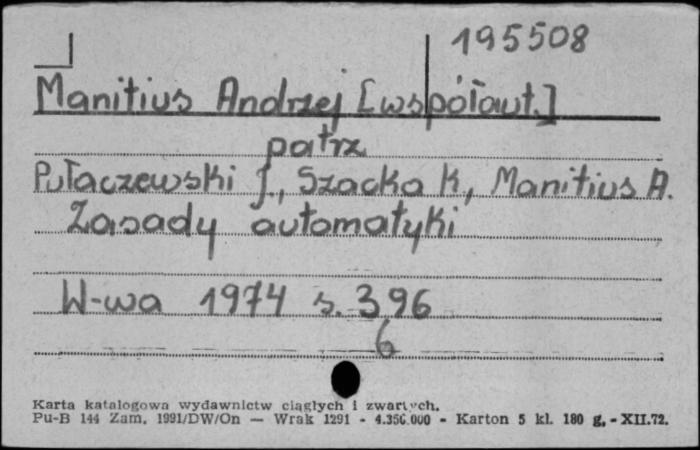 195508
Manitius Andrzej [współaut.]
patrz
Pułaczewski J., Szacka K., Manitius A.
Zasady automatyki
W-wa 1974 s. 396
6
Karta katalogowa wydawnictw ciągłych i zwartych.
Pu-B 144 Zam. 1991/DW/On — Wrak 1291 - 4.350.000 - Karton 5 kl. 180 g. - XII.72.